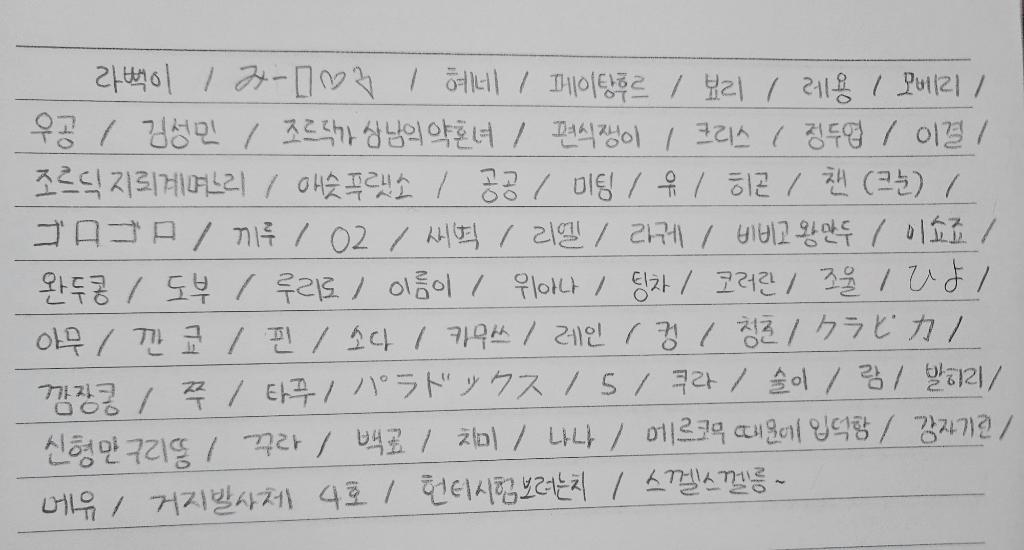 라뻑이 / / 혜네 / 페이탕후르 / 보리 / 레용 / 모베리 /
우공 / 김성민 / 조르딕가 삼남의 약혼녀 / 편식쟁이 / 크리스 / 정두엽 / 이결 /
조르딕 지뢰계며느리 / 애슛푸랫소 / 공공 / 미팅 / 유 / 히곤 / 챈 (크눈) /
ゴロゴロ / 끼루 / 02 / 써벅 / 리엘 / 라궤 / 비비고 왕만두 / 이쇼죠 /
완두콩 / 도부 / 루리로 / 이름이 / 위아나 / 팅차 / 코러란 / 조울 / ひよ /
야무 / 깐쿄 / 핀 / 소다 / 카무쓰 / 레인 / 컹 / 청호 / クラピカ /
낌장콩 / 쭈 / 타꾸 / パラドックス / S / 쿠라 / 술이 / 람 / 발히리 /
신형만구리똥 / 꾸라 / 백표 / 치미 / 나나 / 메르코무 때문에 입덕함 / 감자기린 /
메유 / 거지발사체 4호 / 헌터시험보려는치 / 스껠스껠릉~